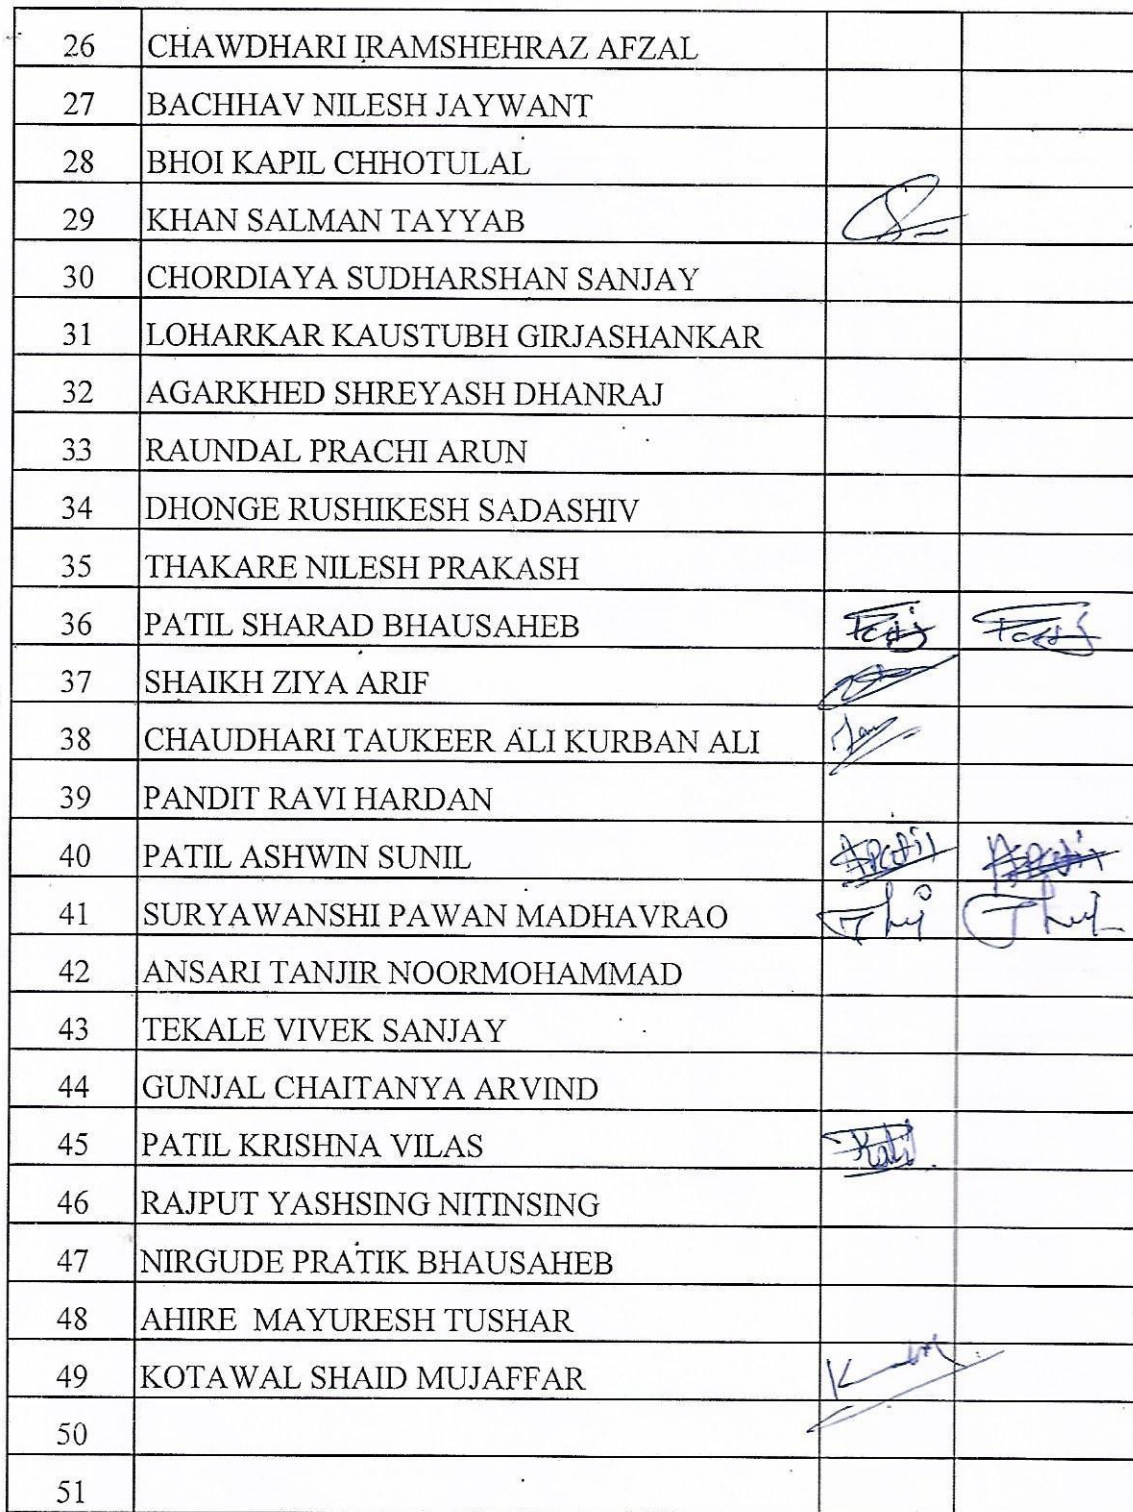 26 CHAWDHARI IRAMSHEHRAZ AFZAL
27 BACHHAV NILESH JAYWANT
28 BHOI KAPIL CHHOTULAL
29 KHAN SALMAN TAYYAB
30 CHORDIAYA SUDHARSHAN SANJAY
31 LOHARKAR KAUSTUBH GIRJASHANKAR
32 AGARKHED SHREYASH DHANRAJ
33 RAUNDAL PRACHI ARUN
34 DHONGE RUSHIKESH SADASHIV
35 THAKARE NILESH PRAKASH
36 PATIL SHARAD BHAUSAHEB
37 SHAIKH ZIYA ARIF
38 CHAUDHARI TAUKEER ALI KURBAN ALI
39 PANDIT RAVI HARDAN
40 PATIL ASHWIN SUNIL
41 SURYAWANSHI PAWAN MADHAVRAO
42 ANSARI TANJIR NOORMOHAMMAD
43 TEKALE VIVEK SANJAY
44 GUNJAL CHAITANYA ARVIND
45 PATIL KRISHNA VILAS
46 RAJPUT YASHSING NITINSING
47 NIRGUDE PRATIK BHAUSAHEB
48 AHIRE MAYURESH TUSHAR
49 KOTAWAL SHAID MUJAFFAR
50
51